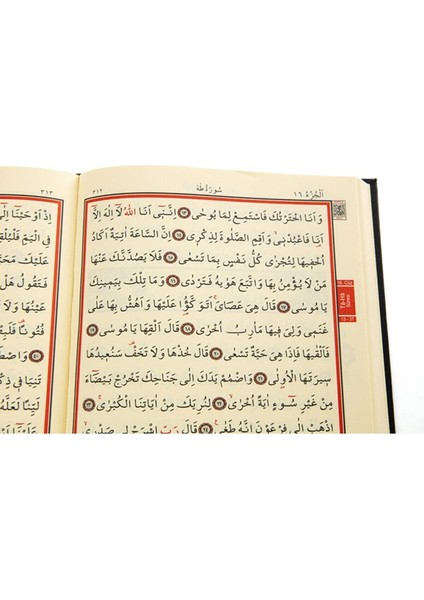 اَلْجُزْءُ ١٦
سُورَةُ طٰهٰ
٣١٢
وَاَنَا اخْتَرْتُكَ فَاسْتَمِعْ لِمَا يُوحٰى ﴿١٣﴾ اِنَّنٓى اَنَا اللّٰهُ لَٓا اِلٰهَ اِلَّٓا
اَنَا فَاعْبُدْنٖى وَاَقِمِ الصَّلٰوةَ لِذِكْرٖى ﴿١٤﴾ اِنَّ السَّاعَةَ اٰتِيَةٌ اَكَادُ
اُخْفٖيهَا لِتُجْزٰى كُلُّ نَفْسٍ بِمَا تَسْعٰى ﴿١٥﴾ فَلَا يَصُدَّنَّكَ عَنْهَا
مَنْ لَا يُؤْمِنُ بِهَا وَاتَّبَعَ هَوٰيهُ فَتَرْدٰى ﴿١٦﴾ وَمَا تِلْكَ بِيَمٖينِكَ
يَا مُوسٰى ﴿١٧﴾ قَالَ هِىَ عَصَاىَ اَتَوَكَّؤُا عَلَيْهَا وَاَهُشُّ بِهَا عَلٰى
غَنَمٖى وَلِىَ فٖيهَا مَاٰرِبُ اُخْرٰى ﴿١٨﴾ قَالَ اَلْقِهَا يَا مُوسٰى ﴿١٩﴾
فَاَلْقٰيهَا فَاِذَا هِىَ حَيَّةٌ تَسْعٰى ﴿٢٠﴾ قَالَ خُذْهَا وَلَا تَخَفْ سَنُعٖيدُهَا
سٖيرَتَهَا الْاُولٰى ﴿٢١﴾ وَاضْمُمْ يَدَكَ اِلٰى جَنَاحِكَ تَخْرُجْ بَيْضَٓاءَ
مِنْ غَيْرِ سُٓوءٍ اٰيَةً اُخْرٰى ﴿٢٢﴾ لِنُرِيَكَ مِنْ اٰيَاتِنَا الْكُبْرٰى ﴿٢٣﴾
اِذْهَبْ اِلٰى فِرْعَوْنَ اِنَّهُ طَغٰى ﴿٢٤﴾ قَالَ رَبِّ اشْرَحْ لٖى صَدْرٖى
Tâ-Hâ
٣١٣
اِذْ اَوْحَيْنَٓا اِلٰٓى
فِى الْيَمِّ فَلْيُلْقِهِ
عَلَيْكَ مَحَ
فَتَقُولُ هَلْ
عَيْنُهَا وَلَا
فُتُونًا فَلَبِثْ
﴿٤٠﴾ وَاصْطَ
تَنِيَا فٖى ذِكْ
لَيِّنًا لَعَلَّهُ
عَلَيْنَٓا